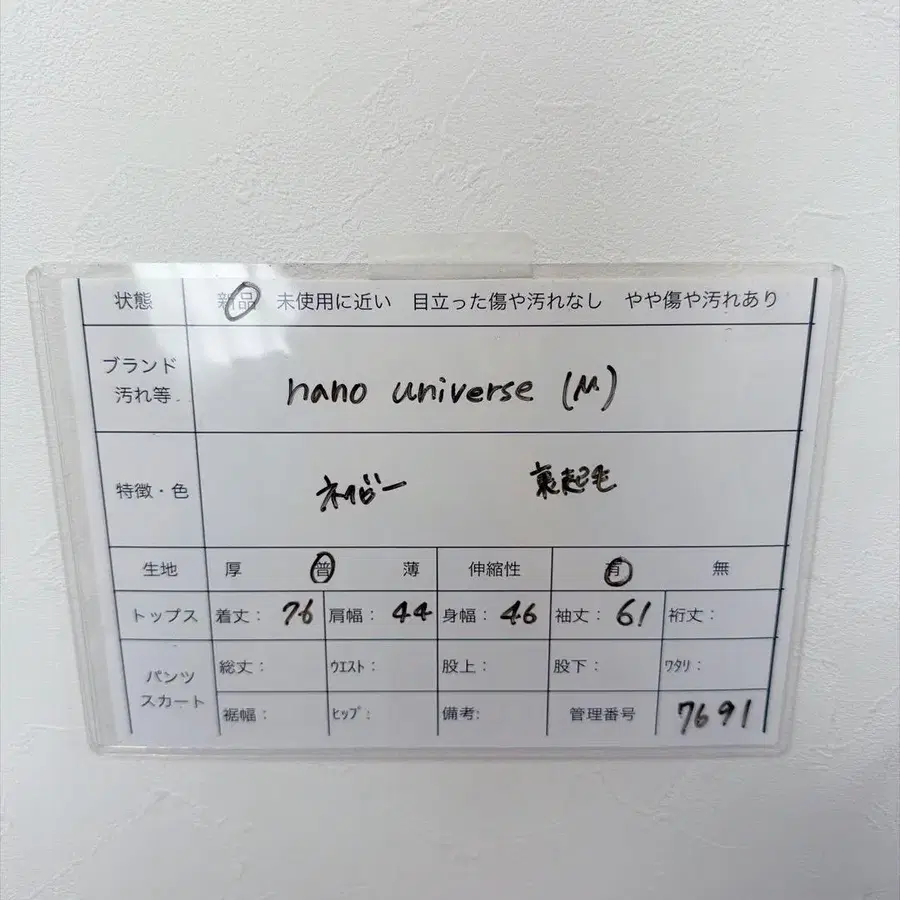 状態 新品 未使用に近い 目立った傷や汚れなし やや傷や汚れあり
ブランド
汚れ等 nano universe (M)
特徴・色 ネイビー 裏起毛
生地 厚 普 薄 伸縮性 有 無
トップス 着丈： 76 肩幅： 44 身幅： 46 袖丈： 61 裄丈：
パンツ
スカート
総丈： ｳｴｽﾄ： 股上： 股下： ﾜﾀﾘ：
裾幅： ﾋｯﾌﾟ： 備考: 管理番号 7691